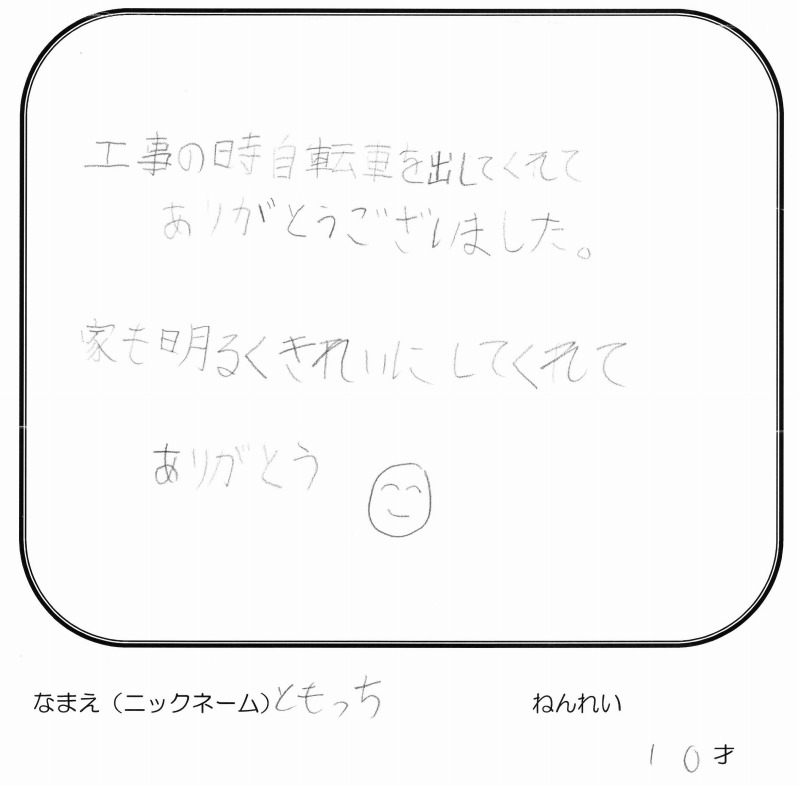 工事の時自転車を出してくれて
ありがとうございました。
家も明るくきれいにしてくれて
ありがとう
なまえ（ニックネーム）ともっち
ねんれい
10才